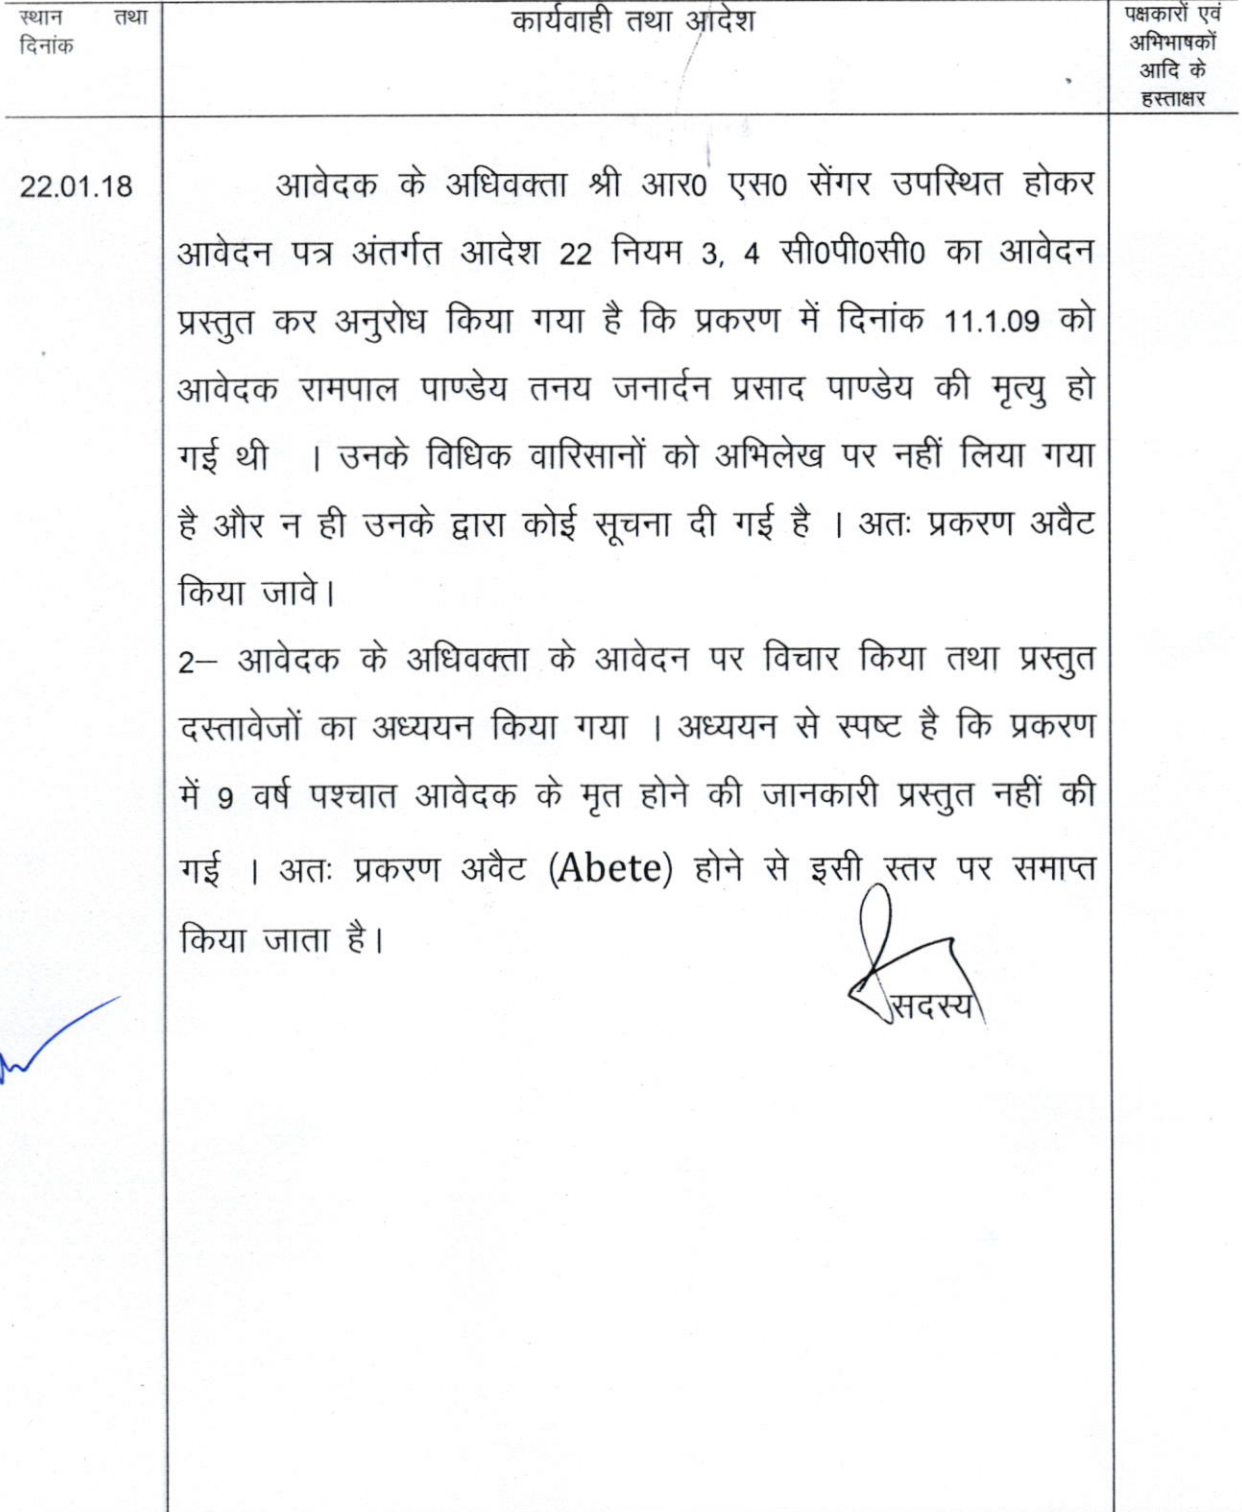 स्थान तथा
दिनांक
कार्यवाही तथा आदेश
पक्षकारों एवं
अभिभाषकों
आदि के
हस्ताक्षर
22.01.18
आवेदक के अधिवक्ता श्री आर0 एस0 सेंगर उपस्थित होकर
आवेदन पत्र अंतर्गत आदेश 22 नियम 3, 4 सी0पी0सी0 का आवेदन
प्रस्तुत कर अनुरोध किया गया है कि प्रकरण में दिनांक 11.1.09 को
आवेदक रामपाल पाण्डेय तनय जनार्दन प्रसाद पाण्डेय की मृत्यु हो
गई थी । उनके विधिक वारिसानों को अभिलेख पर नहीं लिया गया
है और न ही उनके द्वारा कोई सूचना दी गई है । अतः प्रकरण अवैट
किया जावे।
2– आवेदक के अधिवक्ता के आवेदन पर विचार किया तथा प्रस्तुत
दस्तावेजों का अध्ययन किया गया । अध्ययन से स्पष्ट है कि प्रकरण
में 9 वर्ष पश्चात आवेदक के मृत होने की जानकारी प्रस्तुत नहीं की
गई । अतः प्रकरण अवैट (Abete) होने से इसी स्तर पर समाप्त
किया जाता है।
सदस्य